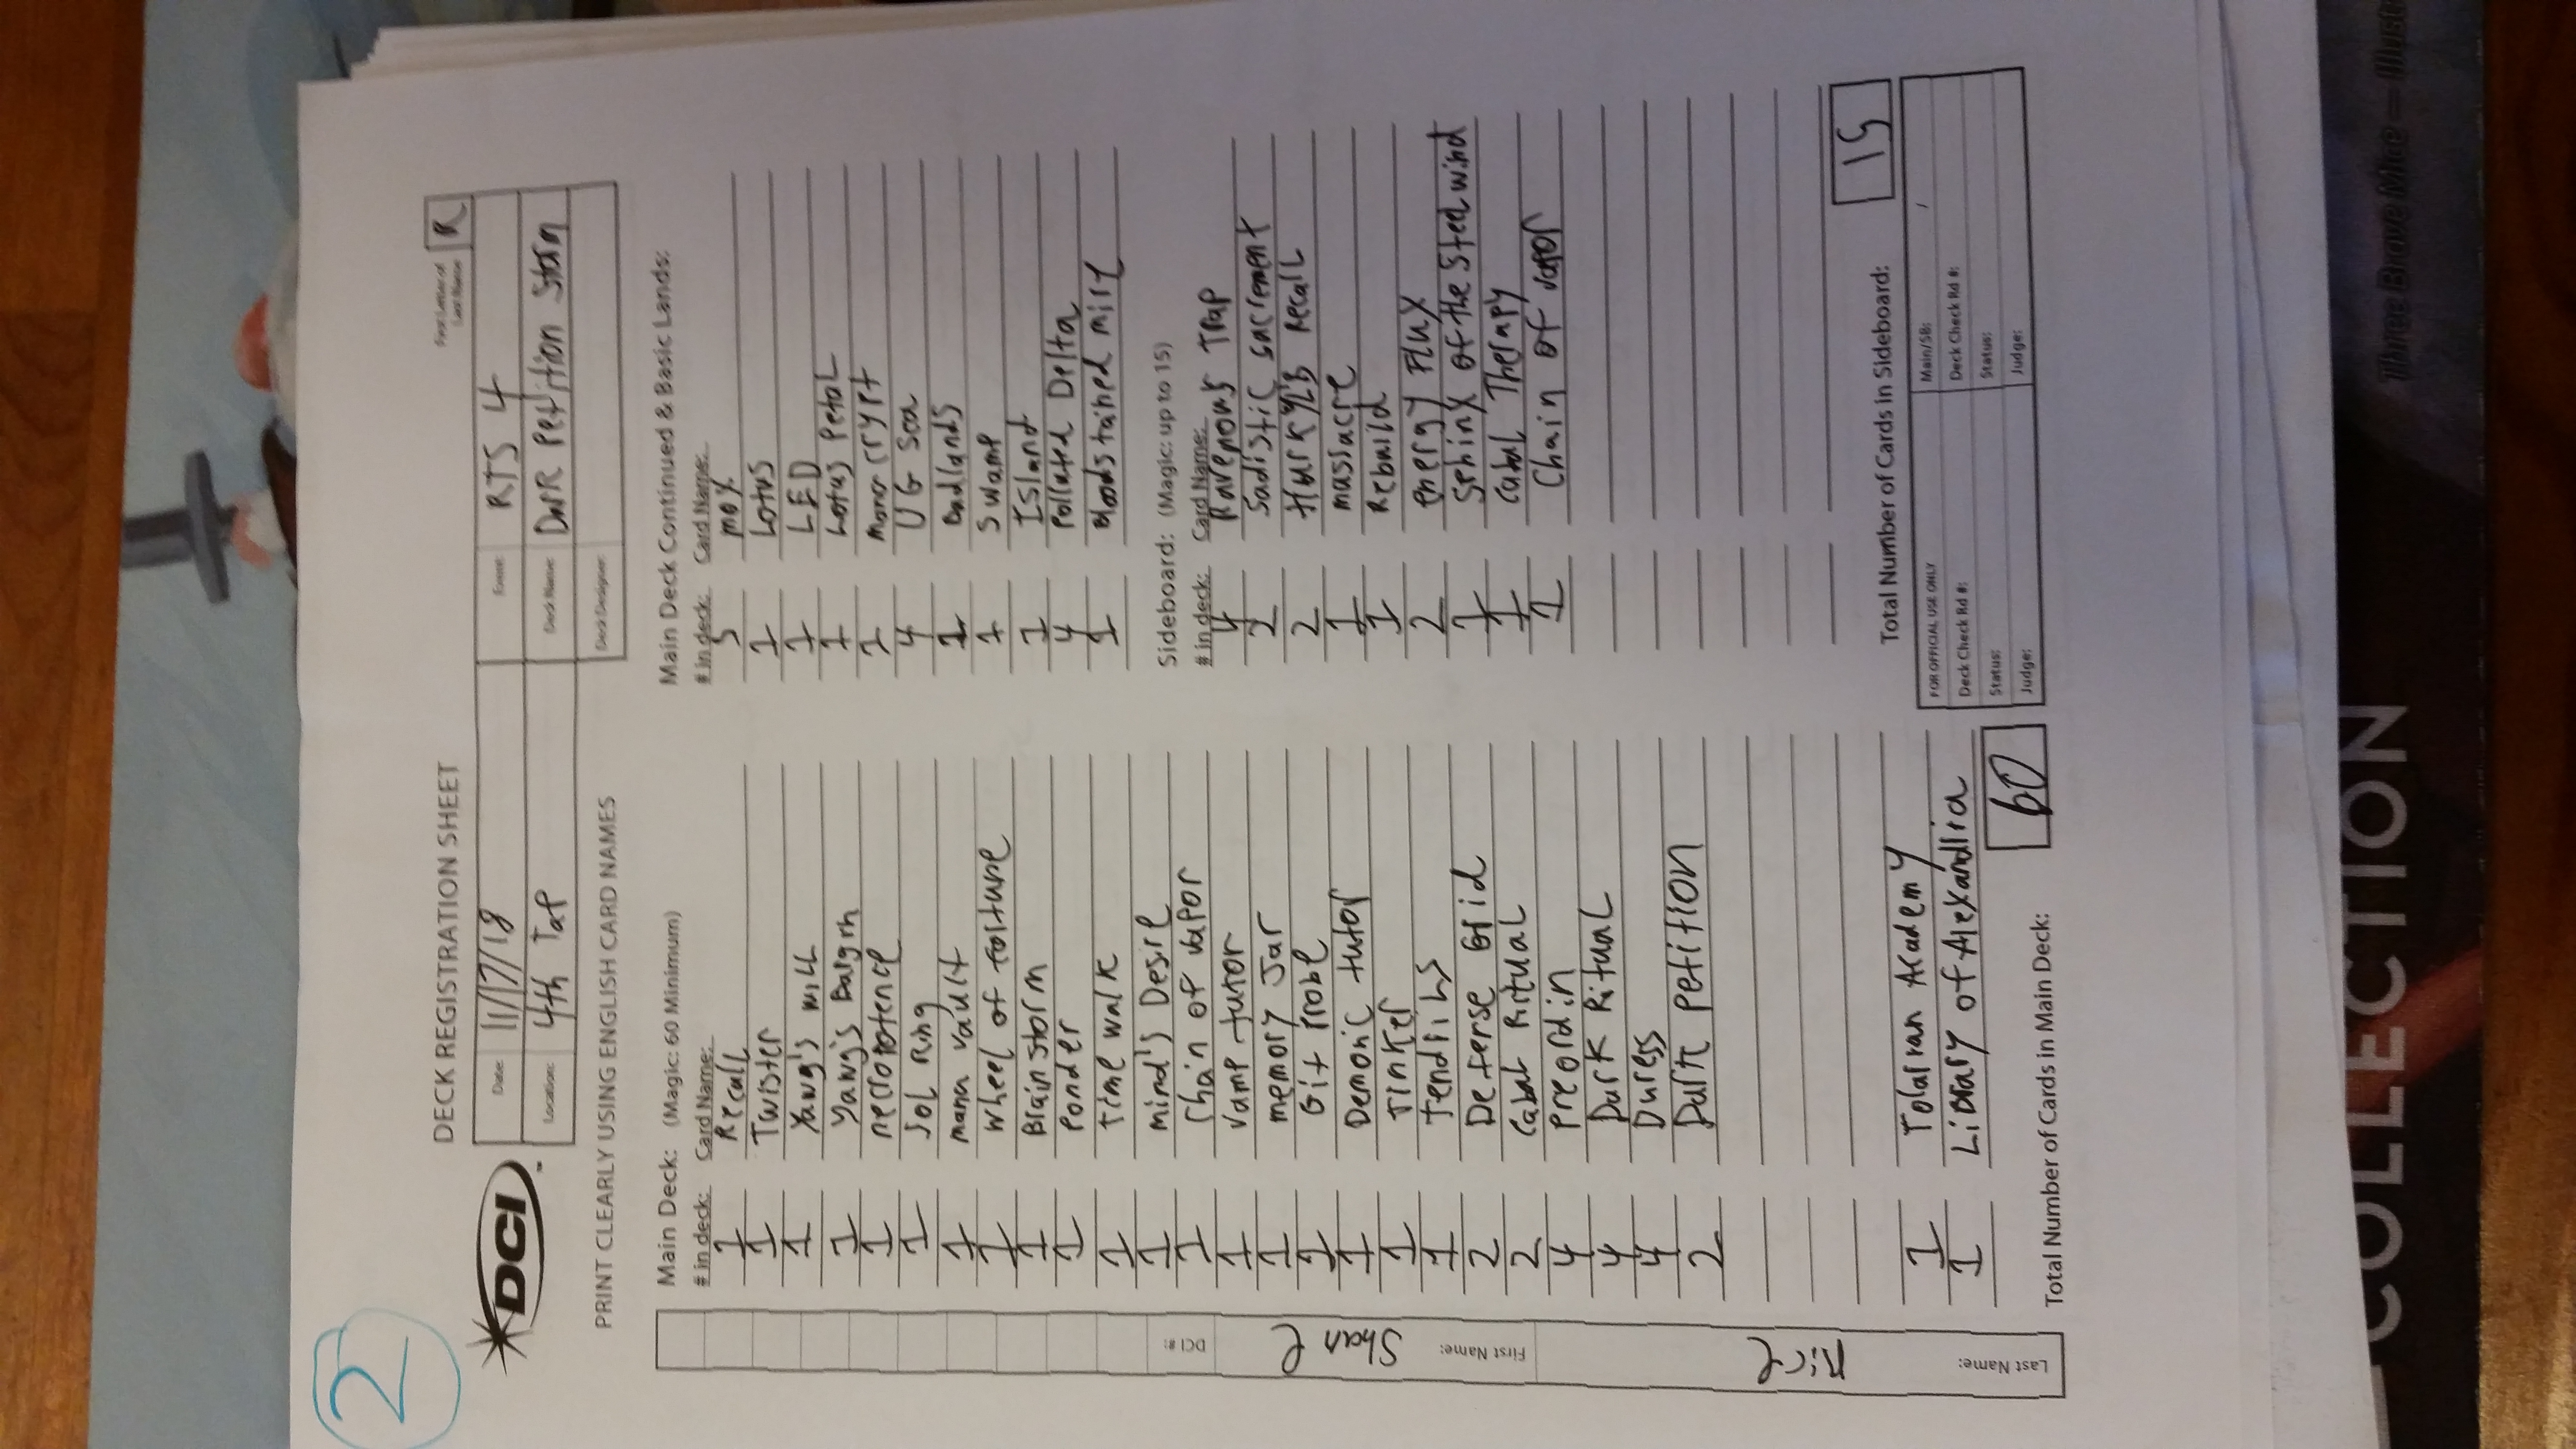 2
DECK REGISTRATION SHEET
First Letter of Last Name: R
DCI
Date: 11/17/18
Event: RTS 4
Location: 4th Tap
Deck Name: Dark Petition Storm
Deck Designer:
PRINT CLEARLY USING ENGLISH CARD NAMES
Main Deck: (Magic: 60 Minimum)
# in deck: Card Name:
1 Recall
1 Twister
1 Yawg's will
1 Yawg's Bargin
1 necropotence
1 Sol Ring
1 mana vault
1 wheel of fortune
1 Brainstorm
1 Ponder
1 Time walk
1 mind's Desire
1 Chain of vapor
1 vamp tutor
1 memory Jar
1 Git Probe
1 Demonic tutor
1 Tinker
1 tendrils
2 Defense Grid
2 Cabal Ritual
4 preordin
4 Dark Ritual
4 Duress
2 Dark petition
1 Tolarian Academy
1 Library of Alexandria
Total Number of Cards in Main Deck: 60
Main Deck Continued & Basic Lands:
# in deck: Card Name:
5 mox
1 Lotus
1 LED
1 Lotus Petal
1 mana crypt
4 UG Sea
1 Badlands
1 Swamp
1 Island
4 Polluted Delta
1 Bloodstained mire
Sideboard: (Magic: up to 15)
# in deck: Card Name:
4 Ravenous Trap
2 Sadistic sacrement
2 Hurkyl's Recall
1 massacre
1 Rebuild
2 energy Flux
1 Sphinx of the Steel wind
1 Cabal Therapy
1 Chain of vapor
Total Number of Cards in Sideboard: 15
FOR OFFICIAL USE ONLY
Main/SB: /
Deck Check Rd #:
Deck Check Rd #:
Status:
Status:
Judge:
Judge:
DCI #:
First Name: Shane
Last Name: Rice
COLLECTION
Three Brave Mice —